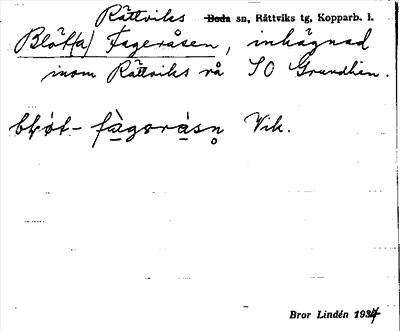 Rättviks Boda sn, Rättviks tg, Kopparb. l.
Blöt(a) Fageråsen, inhägnad
inom Rättviks rå SO Grundlien.
Vik.
Bror Lindén 1934